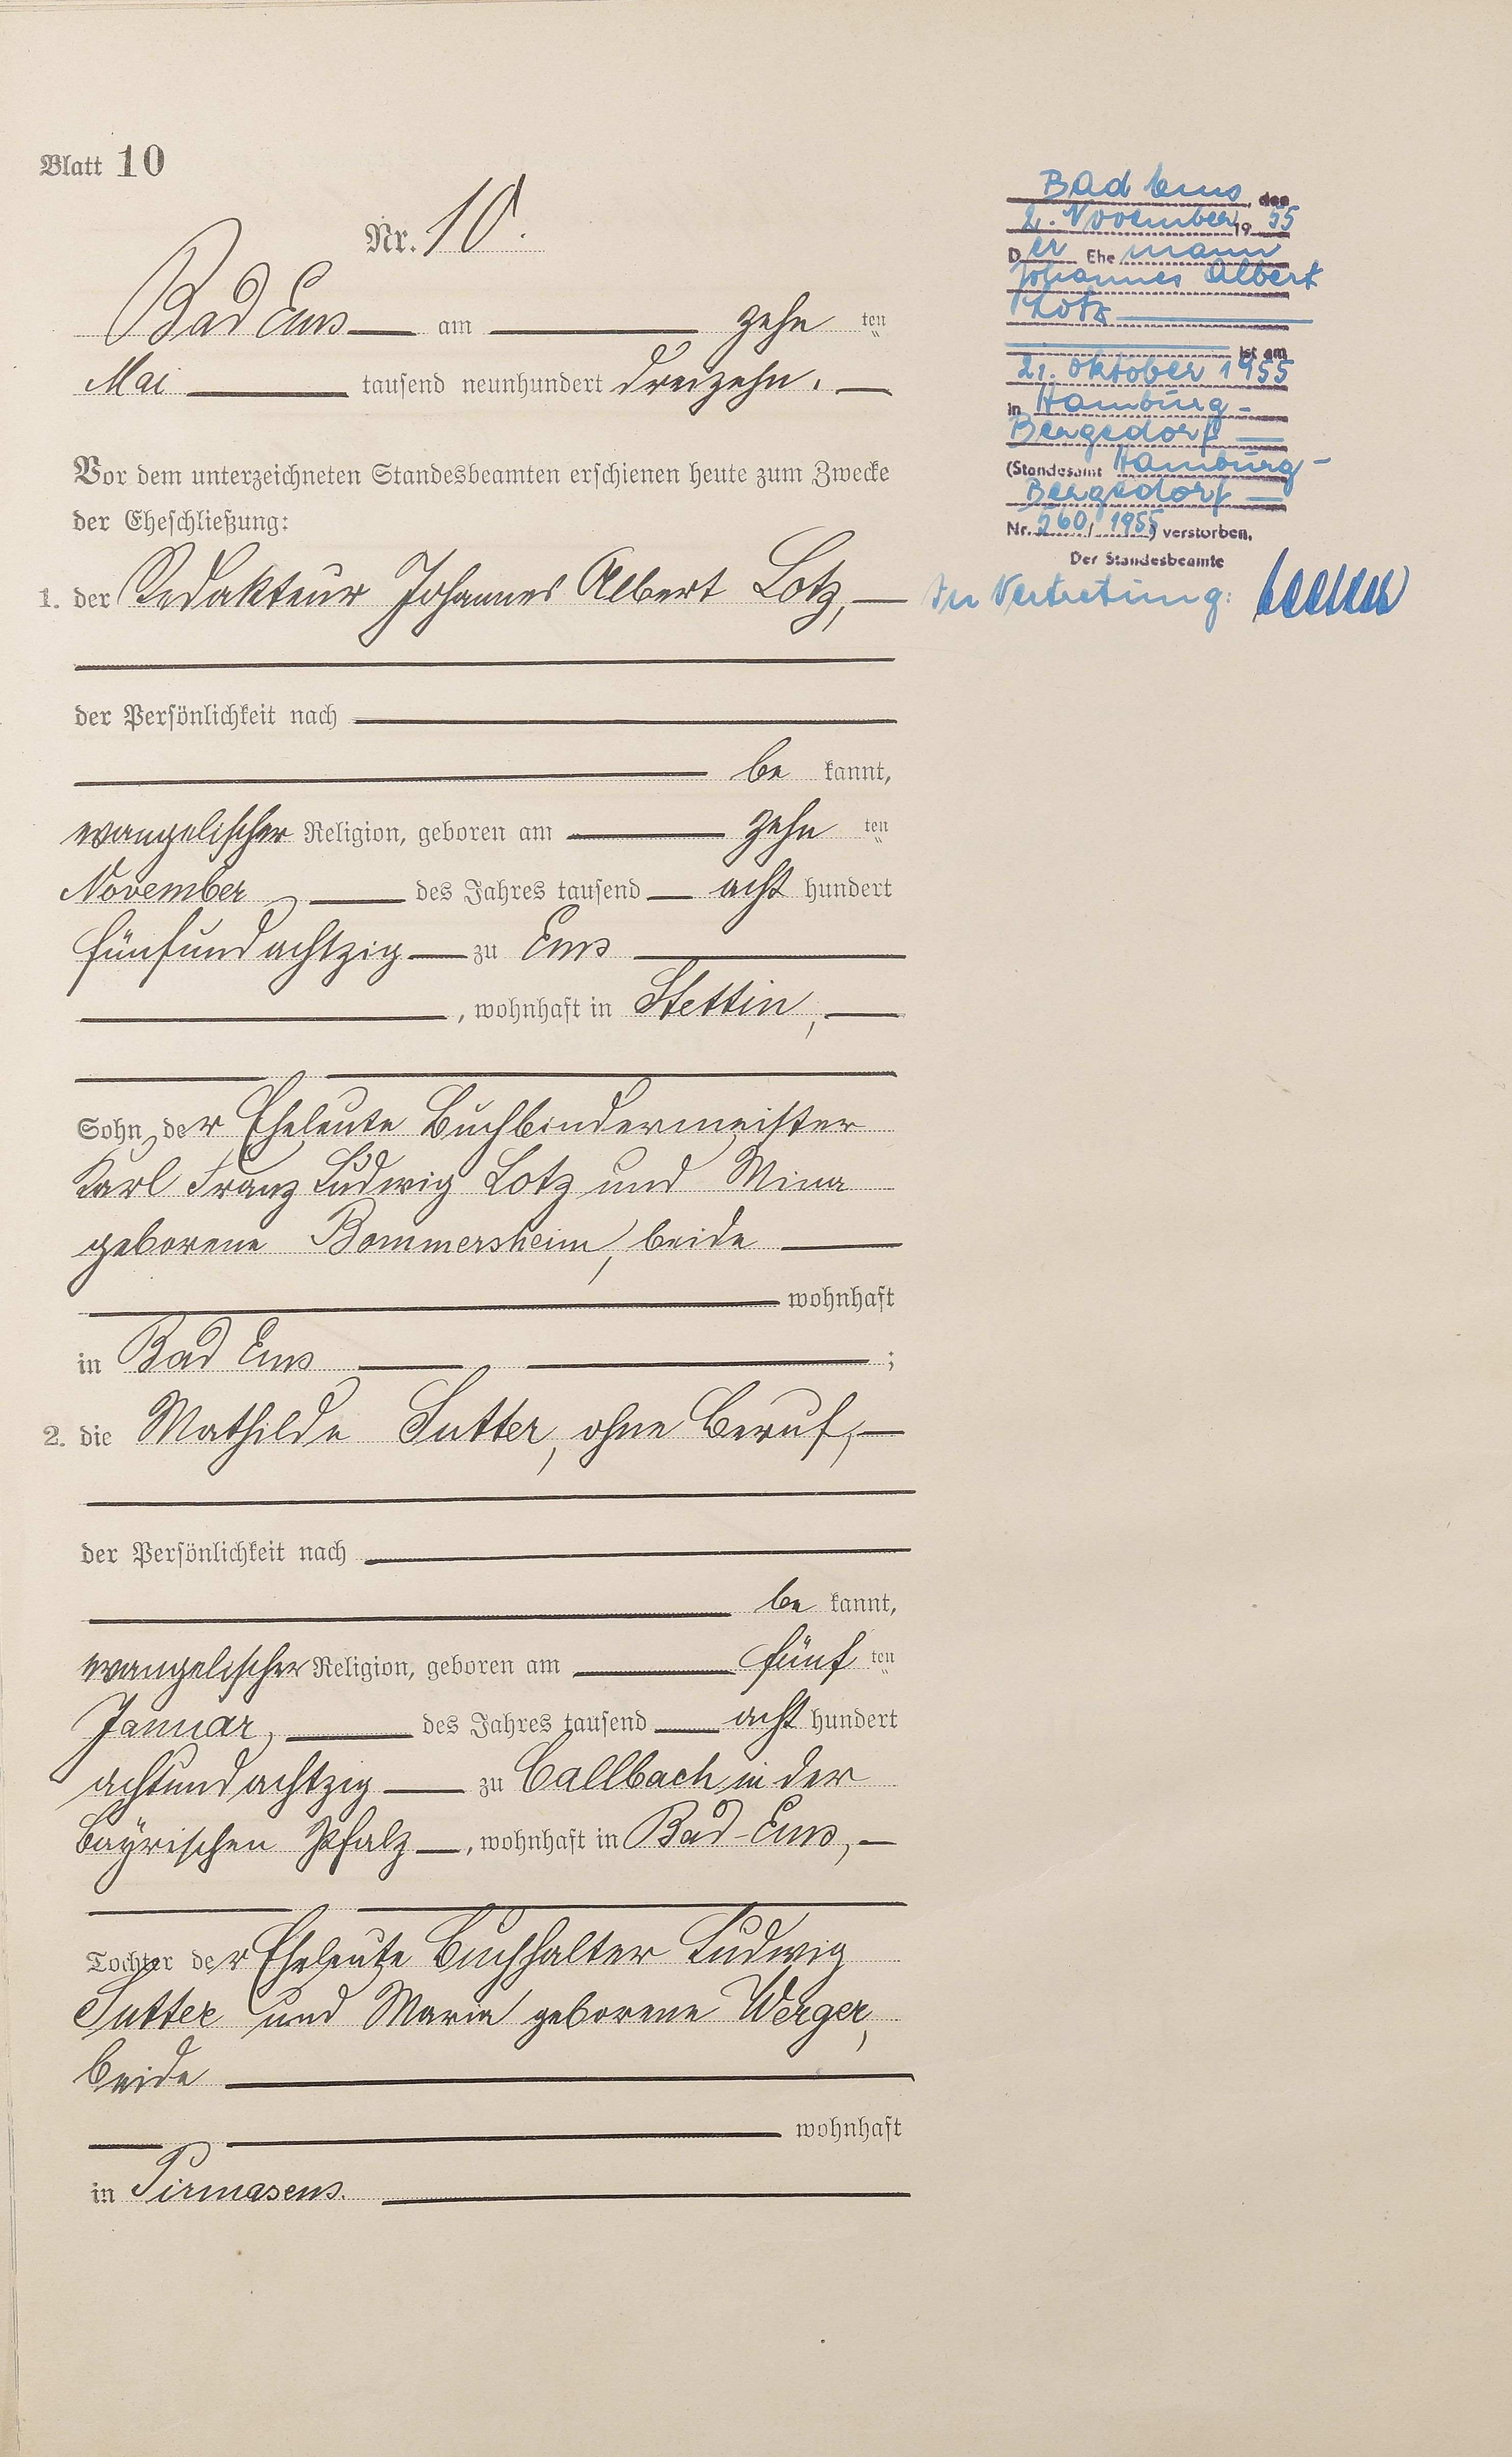 Blatt 10
Nr. 10.
Bad Ems am zehn ten
Mai tausend neunhundert dreizehn.
Vor dem unterzeichneten Standesbeamten erschienen heute zum Zwecke
der Eheschließung:
1. der Redakteur Johannes Albert Lotz,
der Persönlichkeit nach
be kannt,
evangelischer Religion, geboren am zehn ten
November, des Jahres tausend acht hundert
fünfundachtzig zu Ems
, wohnhaft in Stettin,
Sohn der Eheleute Buchbindermeister
Karl Franz Ludwig Lotz und Mina
geborene Bommersheim, beide
wohnhaft
in Bad Ems ;
2. die Mathilde Sutter, ohne Beruf,
der Persönlichkeit nach
be kannt,
evangelischer Religion, geboren am fünf ten
Januar, des Jahres tausend acht hundert
achtundachtzig zu Callbach in der
bayrischen Pfalz, wohnhaft in Bad-Ems,
Tochter der Eheleute Buchhalter Ludwig
Sutter und Maria geborene Werger,
beide
wohnhaft
in Pirmasens.
Bad Ems, den
2. November 19 55
Der Ehe mann
Johannes Albert
Lotz
ist am
21. Oktober 1955
in Hamburg-
Bergedorf
(Standesamt Hamburg-
Bergedorf
Nr. 560/1955) verstorben.
Der Standesbeamte
In Vertretung: